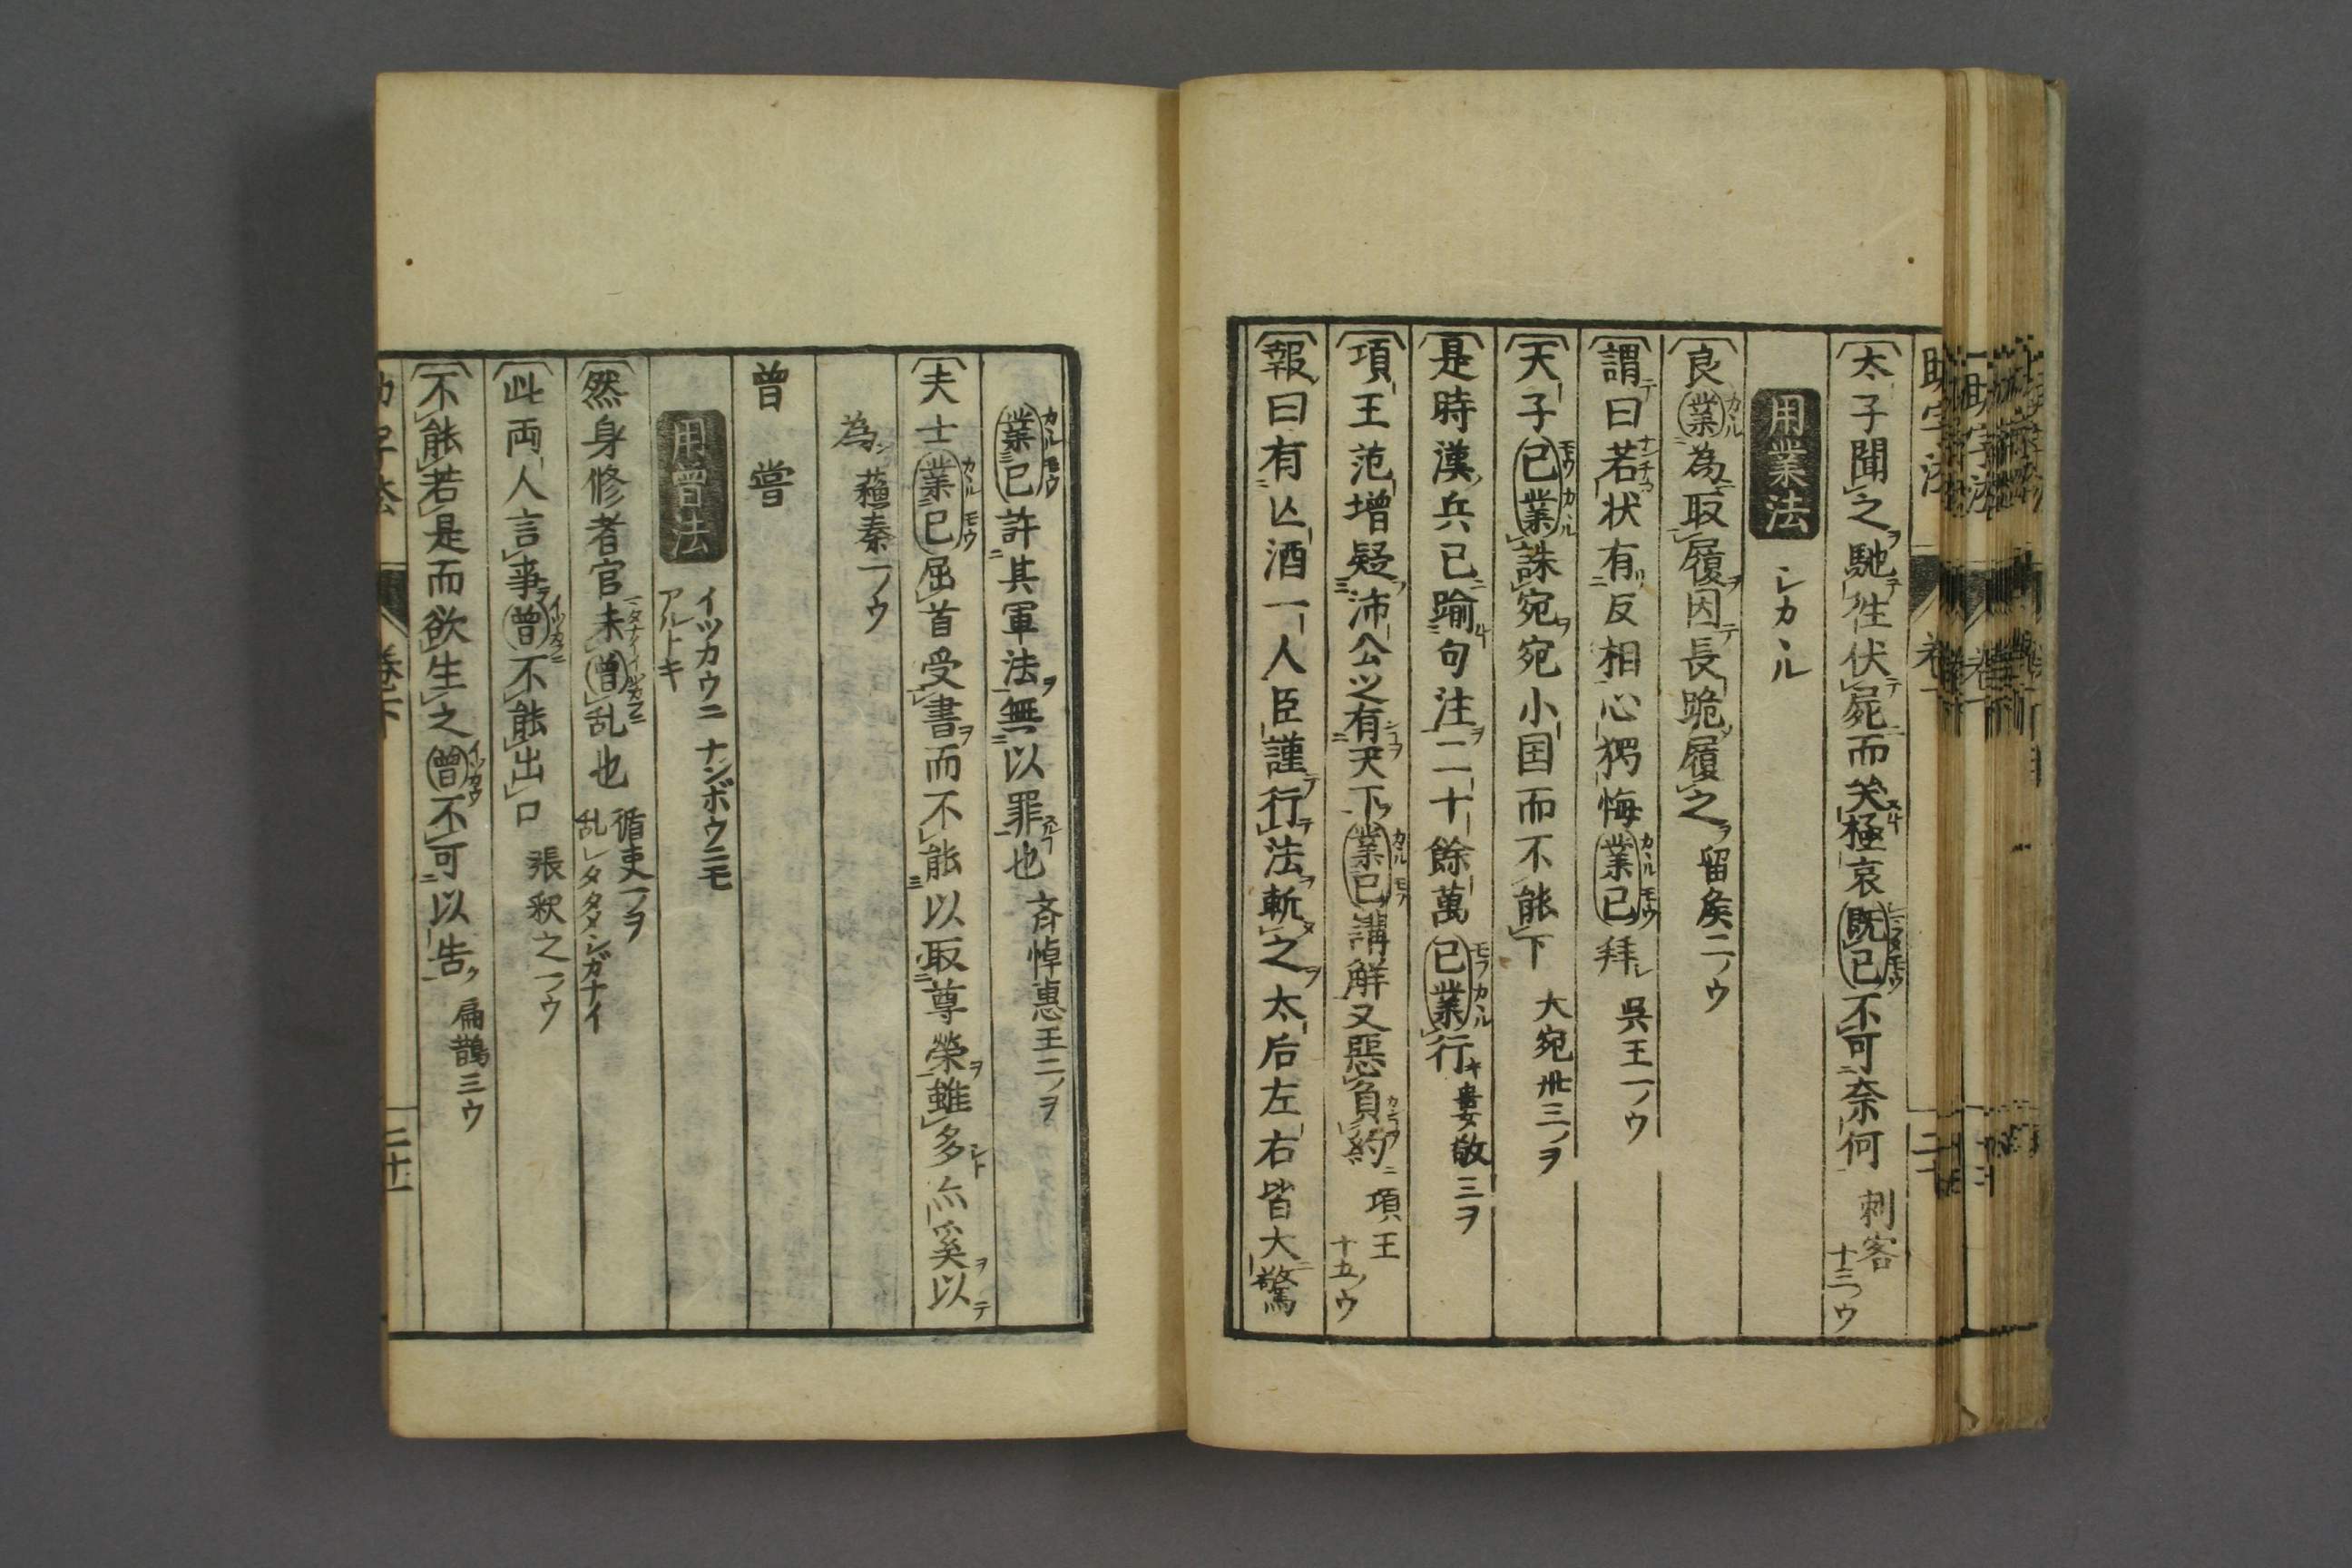 太子聞之馳往伏屍而哭極哀既已不可奈何 刺客十三ノウ
用業法 シカヽル
良業為取履因長跪履之 留矦二ノウ
謂曰若状有反相心獨悔業已拜 吳王一ノウ
天子已業誅宛宛小国而不能下 大宛卅三ノヲ
是時漢兵已踰句注二十餘萬已業行 婁敬三ヲ
項王范增疑沛公之有天下業已講解又惡負約 項王十五ノウ
報曰有亾酒一人臣謹行法斬之太后左右皆大驚
業已許其軍法無以罪也 斉悼惠王二ノヲ
夫士業已屈首受書而不能以取尊榮雖多亦奚以
為 蘓秦一ノウ
曾 嘗
用曾法 イツカウニ ナンボウニモ アルトキ
然身修者官未曾乱也 循吏一ノヲ 乱レタタメシガナイ
此両人言事曾不能出口 張釈之一ノウ
不能若是而欲生之曾不可以告 扁鵲三ウ